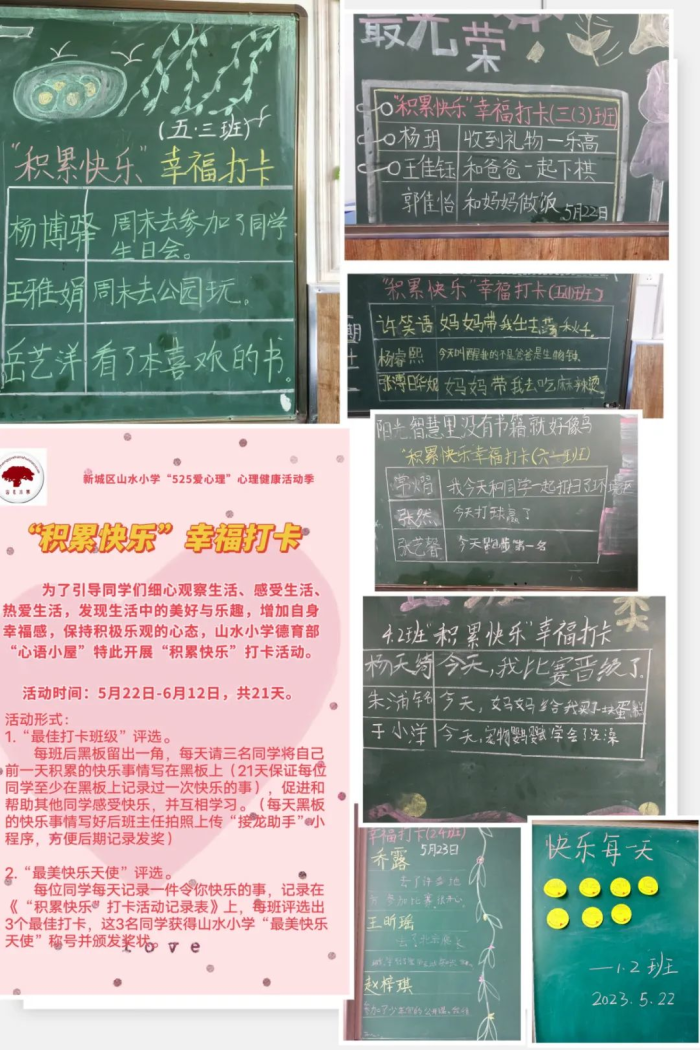 (五·三班)
"积累快乐" 幸福打卡
杨博驿 周末去参加了同学
生日会。
王雅娟 周末去公园玩。
岳艺洋 看了本喜欢的书。
最光荣
"积累快乐"幸福打卡(三(3)班
杨玥 收到礼物一乐高
王佳钰 和爸爸一起下棋
郭佳怡 和妈妈做饭
5月22日
"积累快乐"幸福打卡
许笑语 妈妈带我出去荡秋千。
杨睿熙 今天叫醒我的不是爸爸是生物钟。
妈妈带我去吃麻辣烫。
阳光 智慧里没有书籍就好像鸟
"积累快乐幸福打卡(六一班)
我今天和同学一起打扫了环境区
张然 今天打球赢了
张艺馨 今天跑步第一名
4.2班"积累快乐"幸福打卡
杨天绮 今天,我比赛晋级了.
今天,妈妈给我买了块蛋糕
于小洋 今天,宠物鹦鹉学会了洗澡
新城区山水小学“525爱心理”心理健康活动季
“积累快乐”幸福打卡
为了引导同学们细心观察生活、感受生活、
热爱生活，发现生活中的美好与乐趣，增加自身
幸福感，保持积极乐观的心态，山水小学德育部
“心语小屋”特此开展“积累快乐”打卡活动。
活动时间：5月22日-6月12日，共21天。
活动形式：
1.“最佳打卡班级”评选。
每班后黑板留出一角，每天请三名同学将自己
前一天积累的快乐事情写在黑板上（21天保证每位
同学至少在黑板上记录过一次快乐的事），促进和
帮助其他同学感受快乐，并互相学习。（每天黑板
的快乐事情写好后班主任拍照上传“接龙助手”小
程序，方便后期记录发奖）
2.“最美快乐天使”评选。
每位同学每天记录一件令你快乐的事，记录在
《“积累快乐”打卡活动记录表》上，每班评选出
3个最佳打卡，这3名同学获得山水小学“最美快乐
天使”称号并颁发奖状。
love
幸福打卡(2.4班)
5月23日
乔露
王昕瑶
赵梓琪
快乐每一天
—1.2班
2023.5.22